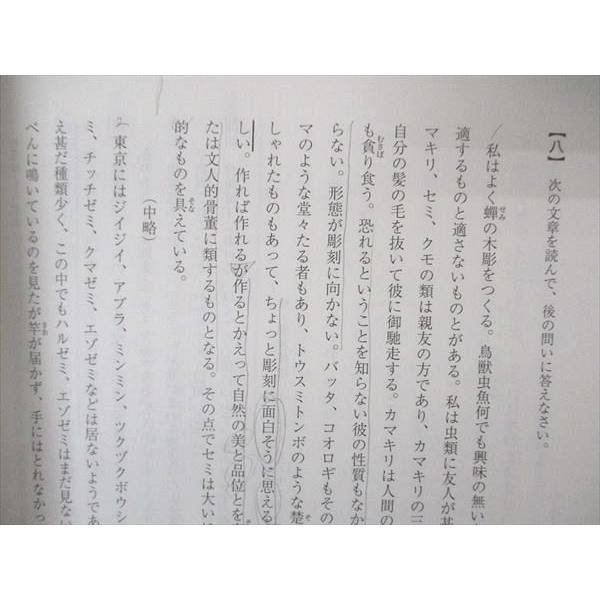 【八】 次の文章を読んで、後の問いに答えなさい。
/私はよく蟬の木彫をつくる。鳥獣虫魚何でも興味の無い
適するものと適さないものとがある。私は虫類に友人が甚
マキリ、セミ、クモの類は親友の方であり、カマキリの三
自分の髪の毛を抜いて彼に御馳走する。カマキリは人間の
も貪り食う。恐れるということを知らない彼の性質もなか
らない。形態が彫刻に向かない。バッタ、コオロギもその
マのような堂々たる者もあり、トウスミトンボのような楚
しゃれたものもあって、ちょっと彫刻に面白そうに思える
しい。作れば作れるが作るとかえって自然の美と品位とを
たは文人的骨董に類するものとなる。その点でセミは大い
的なものを具えている。
(中略)
2/東京にはジイジイ、アブラ、ミンミン、ツクヅクボウシ
ミ、チッチゼミ、クマゼミ、エゾゼミなどは居ないようであ
え甚だ種類少く、この中でもハルゼミ、エゾゼミはまだ見な
ぺんに鳴いているのを見たが竿が届かず、手にはとれなかっ